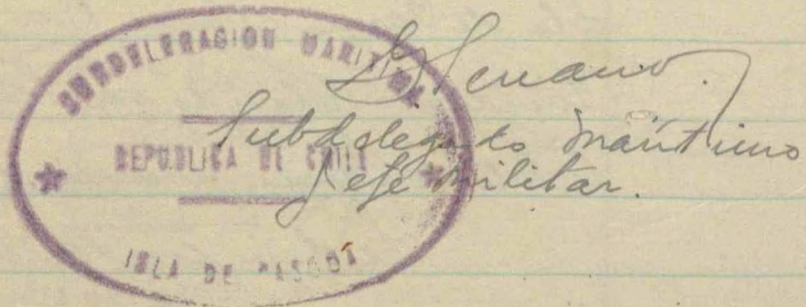 SUBDELEGACION MARITIMA
REPUBLICA DE CHILE
ISLA DE PASCUA
Serrano.
Subdelegado marítimo
Jefe militar.